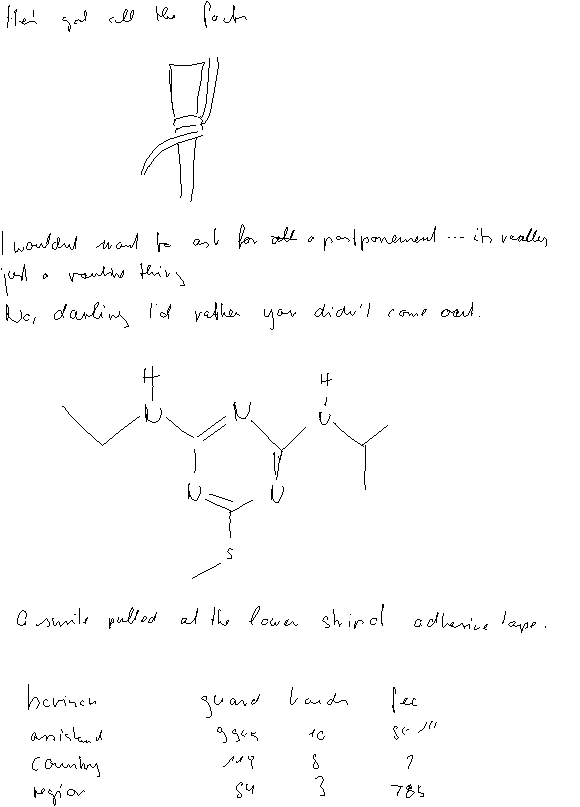 He's got all the facts
I wouldn't want to ask for a postponement... its really
just a routine thing
No, darling I'd rather you didn't come out.
H
H
N
N
N
N
N
S
A smile pulled at the lower strip of adhesive tape.
horizon guard bands fee
assistant
country 119 8 7
region 84 3 785